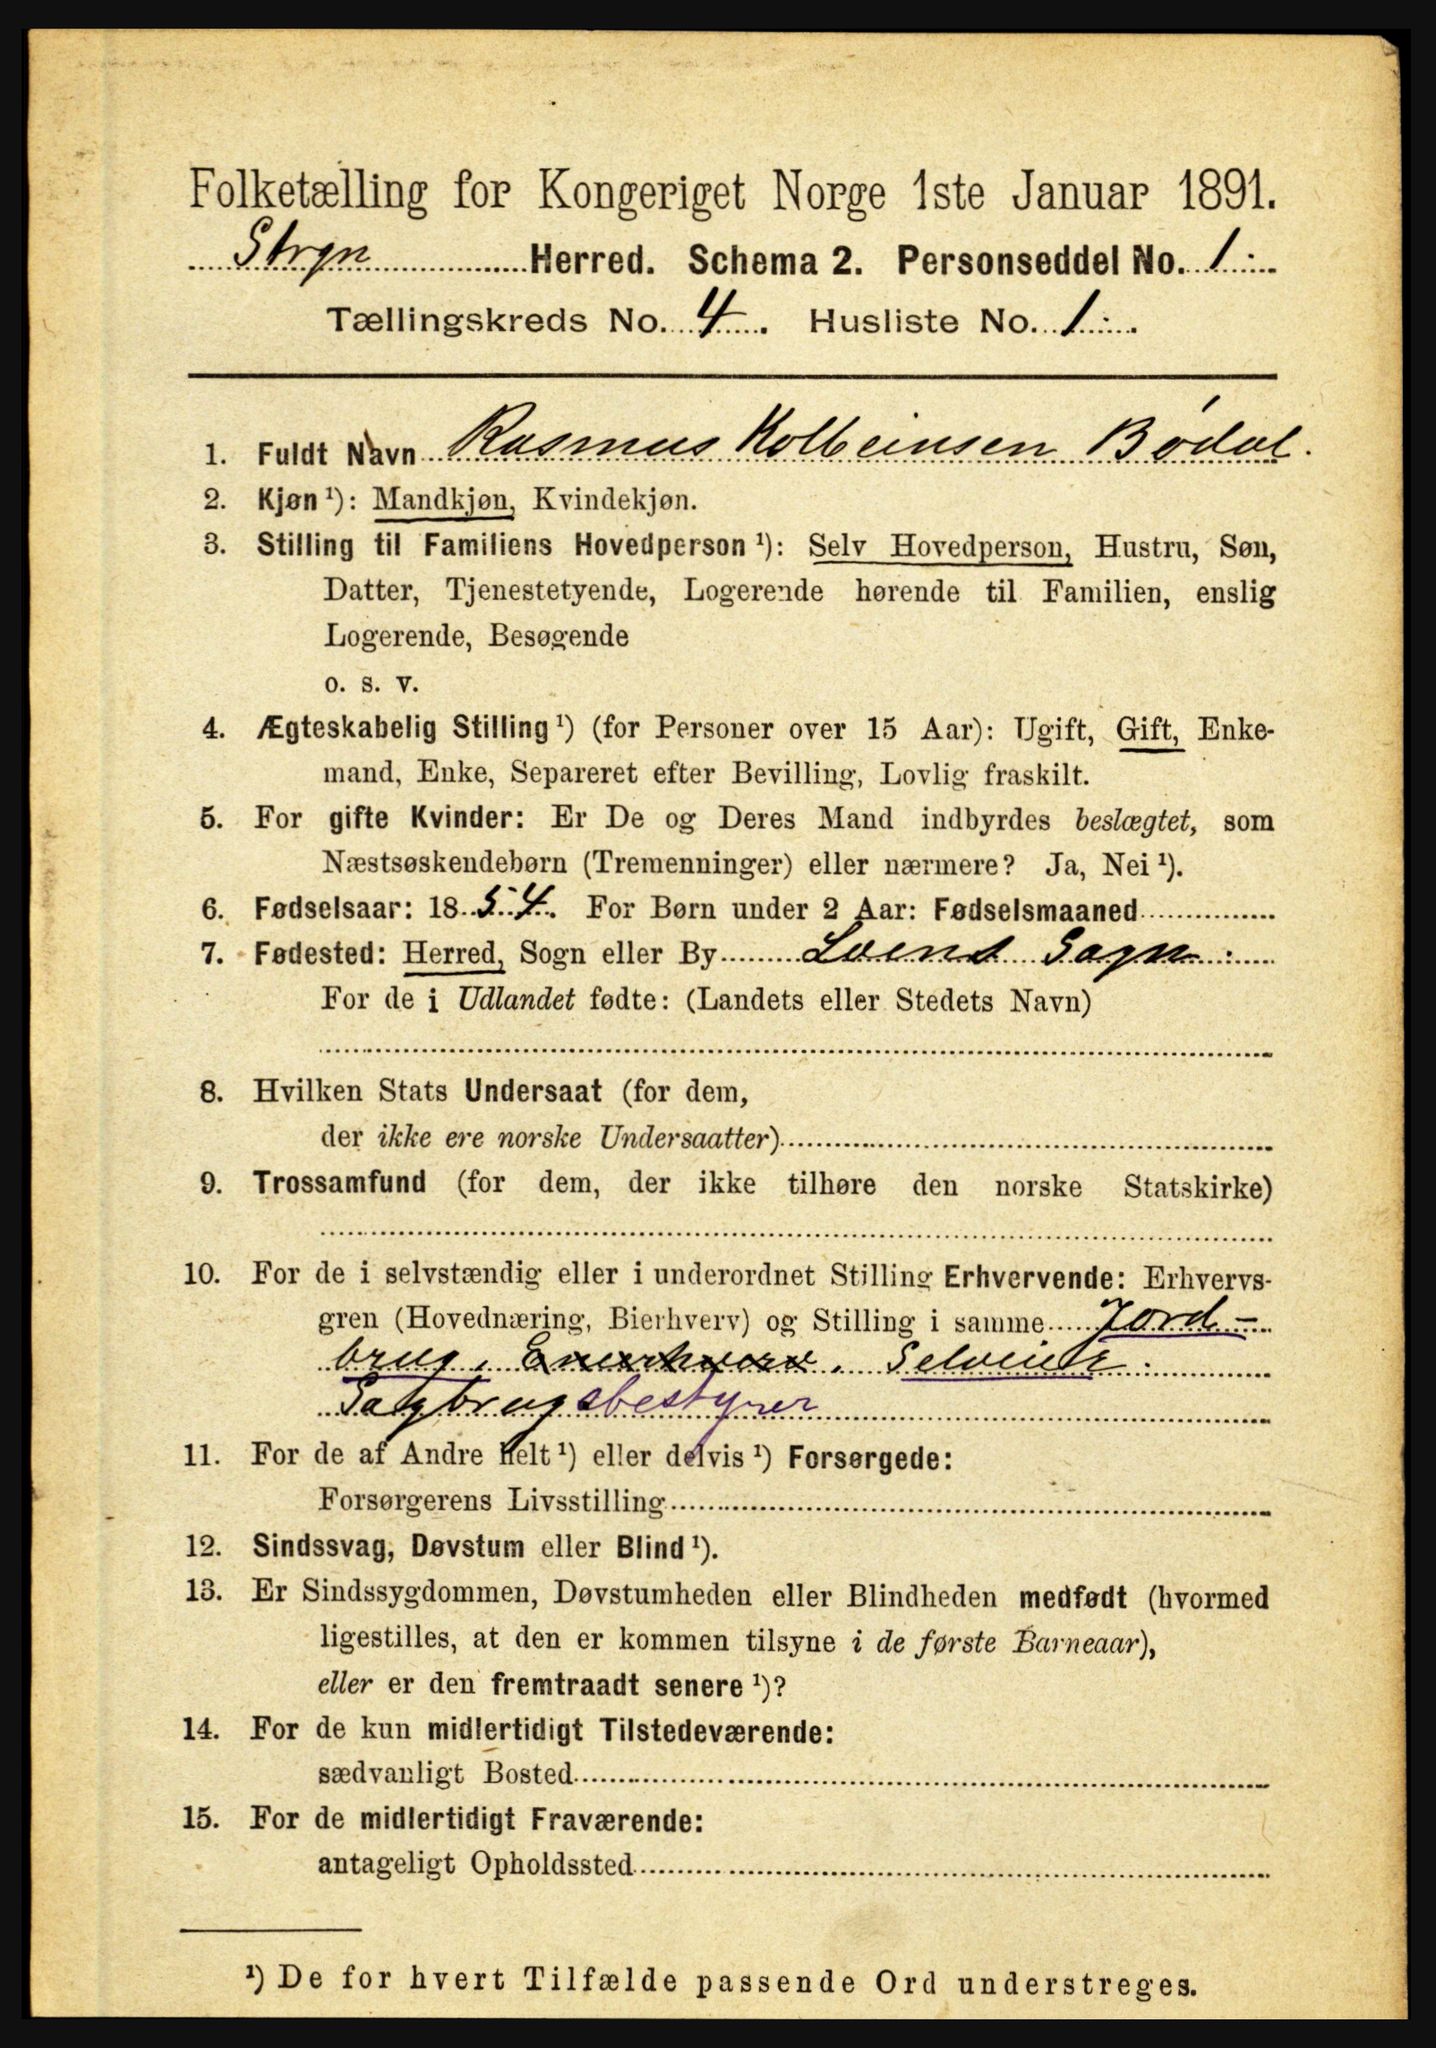 Folketælling for Kongeriget Norge 1ste Januar 1891.
Stryn Herred. Schema 2. Personseddel No. 1.
Tællingskreds No. 4. Husliste No. 1.
1. Fuldt Navn Rasmus Kolbeinsen Bødal.
2. Kjøn ¹): Mandkjøn, Kvindekjøn.
3. Stilling til Familiens Hovedperson ¹): Selv Hovedperson, Hustru, Søn,
Datter, Tjenestetyende, Logerende hørende til Familien, enslig
Logerende, Besøgende
o. s. v.
4. Ægteskabelig Stilling ¹) (for Personer over 15 Aar): Ugift, Gift, Enke-
mand, Enke, Separeret efter Bevilling, Lovlig fraskilt.
5. For gifte Kvinder: Er De og Deres Mand indbyrdes beslægtet, som
Næstsøskendebørn (Tremenninger) eller nærmere? Ja, Nei ¹).
6. Fødselsaar: 1854. For Børn under 2 Aar: Fødselsmaaned
7. Fødested: Herred, Sogn eller By Loens Sogn
For de i Udlandet fødte: (Landets eller Stedets Navn)
8. Hvilken Stats Undersaat (for dem,
der ikke ere norske Undersaatter)
9. Trossamfund (for dem, der ikke tilhøre den norske Statskirke)
10. For de i selvstændig eller i underordnet Stilling Erhvervende: Erhvervs-
gren (Hovednæring, Bierhverv) og Stilling i samme Jord-
brug. Selveier.
Sagbrugsbestyrer
11. For de af Andre helt ¹) eller delvis ¹) Forsørgede:
Forsørgerens Livsstilling
12. Sindssvag, Døvstum eller Blind ¹).
13. Er Sindssygdommen, Døvstumheden eller Blindheden medfødt (hvormed
ligestilles, at den er kommen tilsyne i de første Barneaar),
eller er den fremtraadt senere ¹)?
14. For de kun midlertidigt Tilstedeværende:
sædvanligt Bosted
15. For de midlertidigt Fraværende:
antageligt Opholdssted
¹) De for hvert Tilfælde passende Ord understreges.